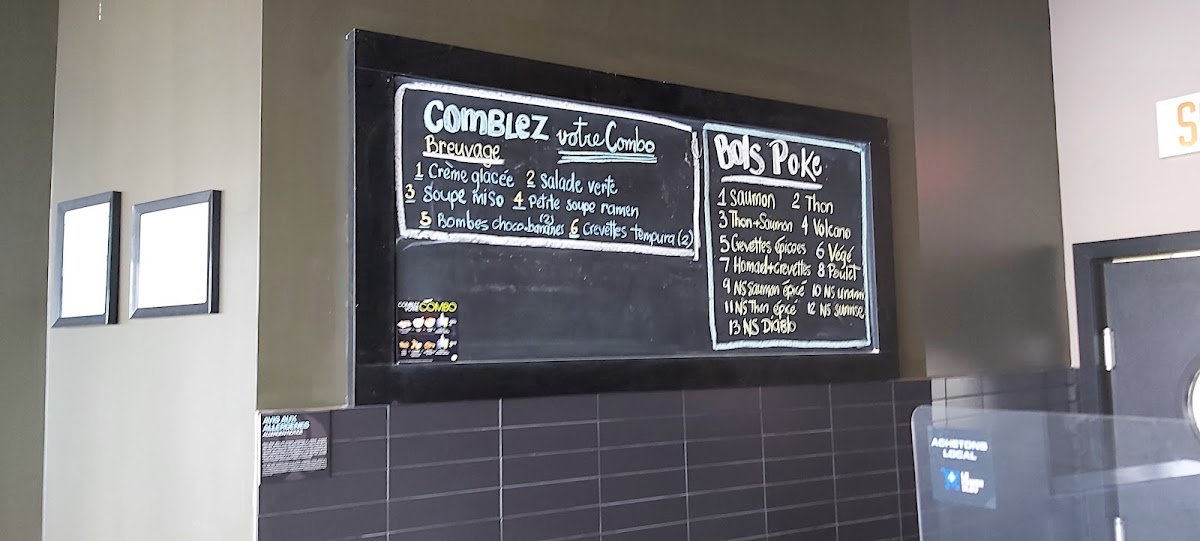 COMBLEZ votre Combo
Breuvage
1 Crème glacée 2 Salade verte
3 Soupe miso 4 Petite soupe ramen
5 Bombes choco-bananes (2) 6 Crevettes tempura (2)
COMBO
Bols Poke
1 Saumon 2 Thon
3 Thon+Saumon 4 Volcano
5 Crevettes épicées 6 Végé
7 Homard+crevettes 8 Poulet
9 NS Saumon épicé 10 NS Unami
11 NS Thon épicé 12 NS Sunrise
13 NS Diablo
AVIS AUX
ALLERGÈNES
ACHETONS
LOCAL
S